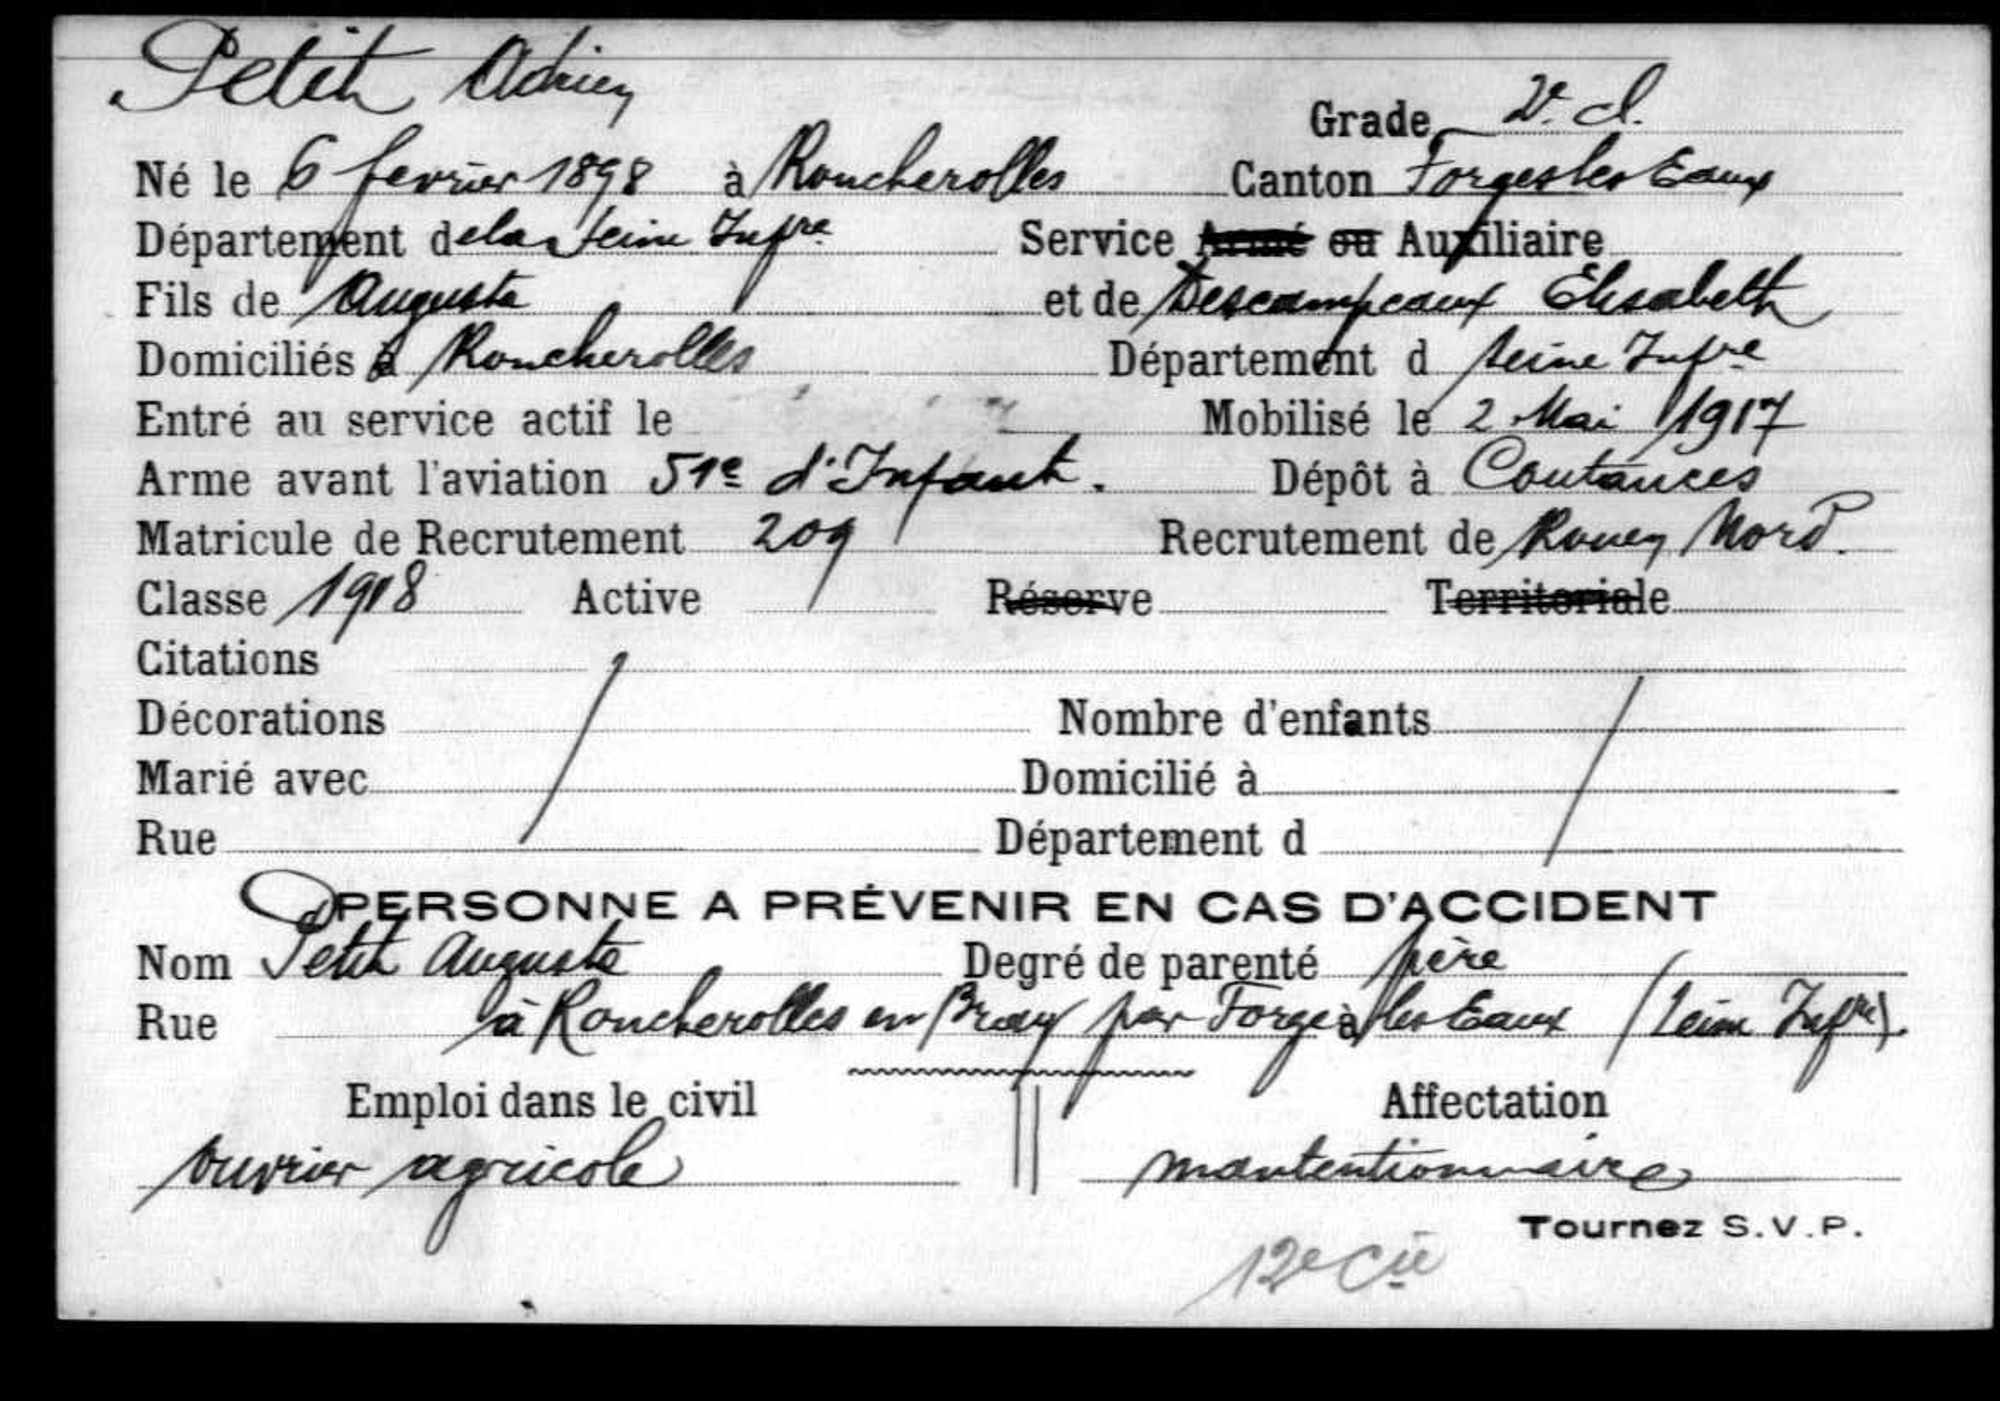 Petit Adrien
Grade 2e cl.
Né le 6 fevrier 1898 à Roncherolles Canton Forges les Eaux
Département de la Seine Infre Service Armé ou Auxiliaire
Fils de Auguste et de Descampeaux Elisabeth
Domiciliés à Roncherolles Département d Seine Infre
Entré au service actif le Mobilisé le 2 Mai 1917
Arme avant l'aviation 51e d'Infant. Dépôt à Coutances
Matricule de Recrutement 209 Recrutement de Rouen Nord.
Classe 1918 Active Réserve Territoriale
Citations
Décorations Nombre d'enfants
Marié avec Domicilié à
Rue Département d
PERSONNE A PRÉVENIR EN CAS D'ACCIDENT
Nom Petit Auguste Degré de parenté père
Rue à Roncherolles en Bray par Forges les Eaux (Seine Infre).
Emploi dans le civil Affectation
ouvrier agricole mantentionnaire
Tournez S.V.P.
12e Cie